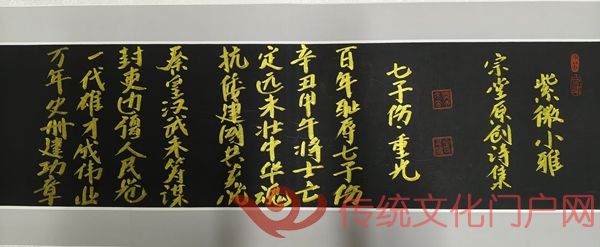 紫微小雅
宗堂原创诗集
七子伤·重光
百年耻辱七子伤
辛丑甲午将士亡
定远未壮中华魂
抗倭建国共
秦皇汉武未筹谋
封吏边疆人民
一代雄才成伟业
万年史册建功章
传统文化门户网